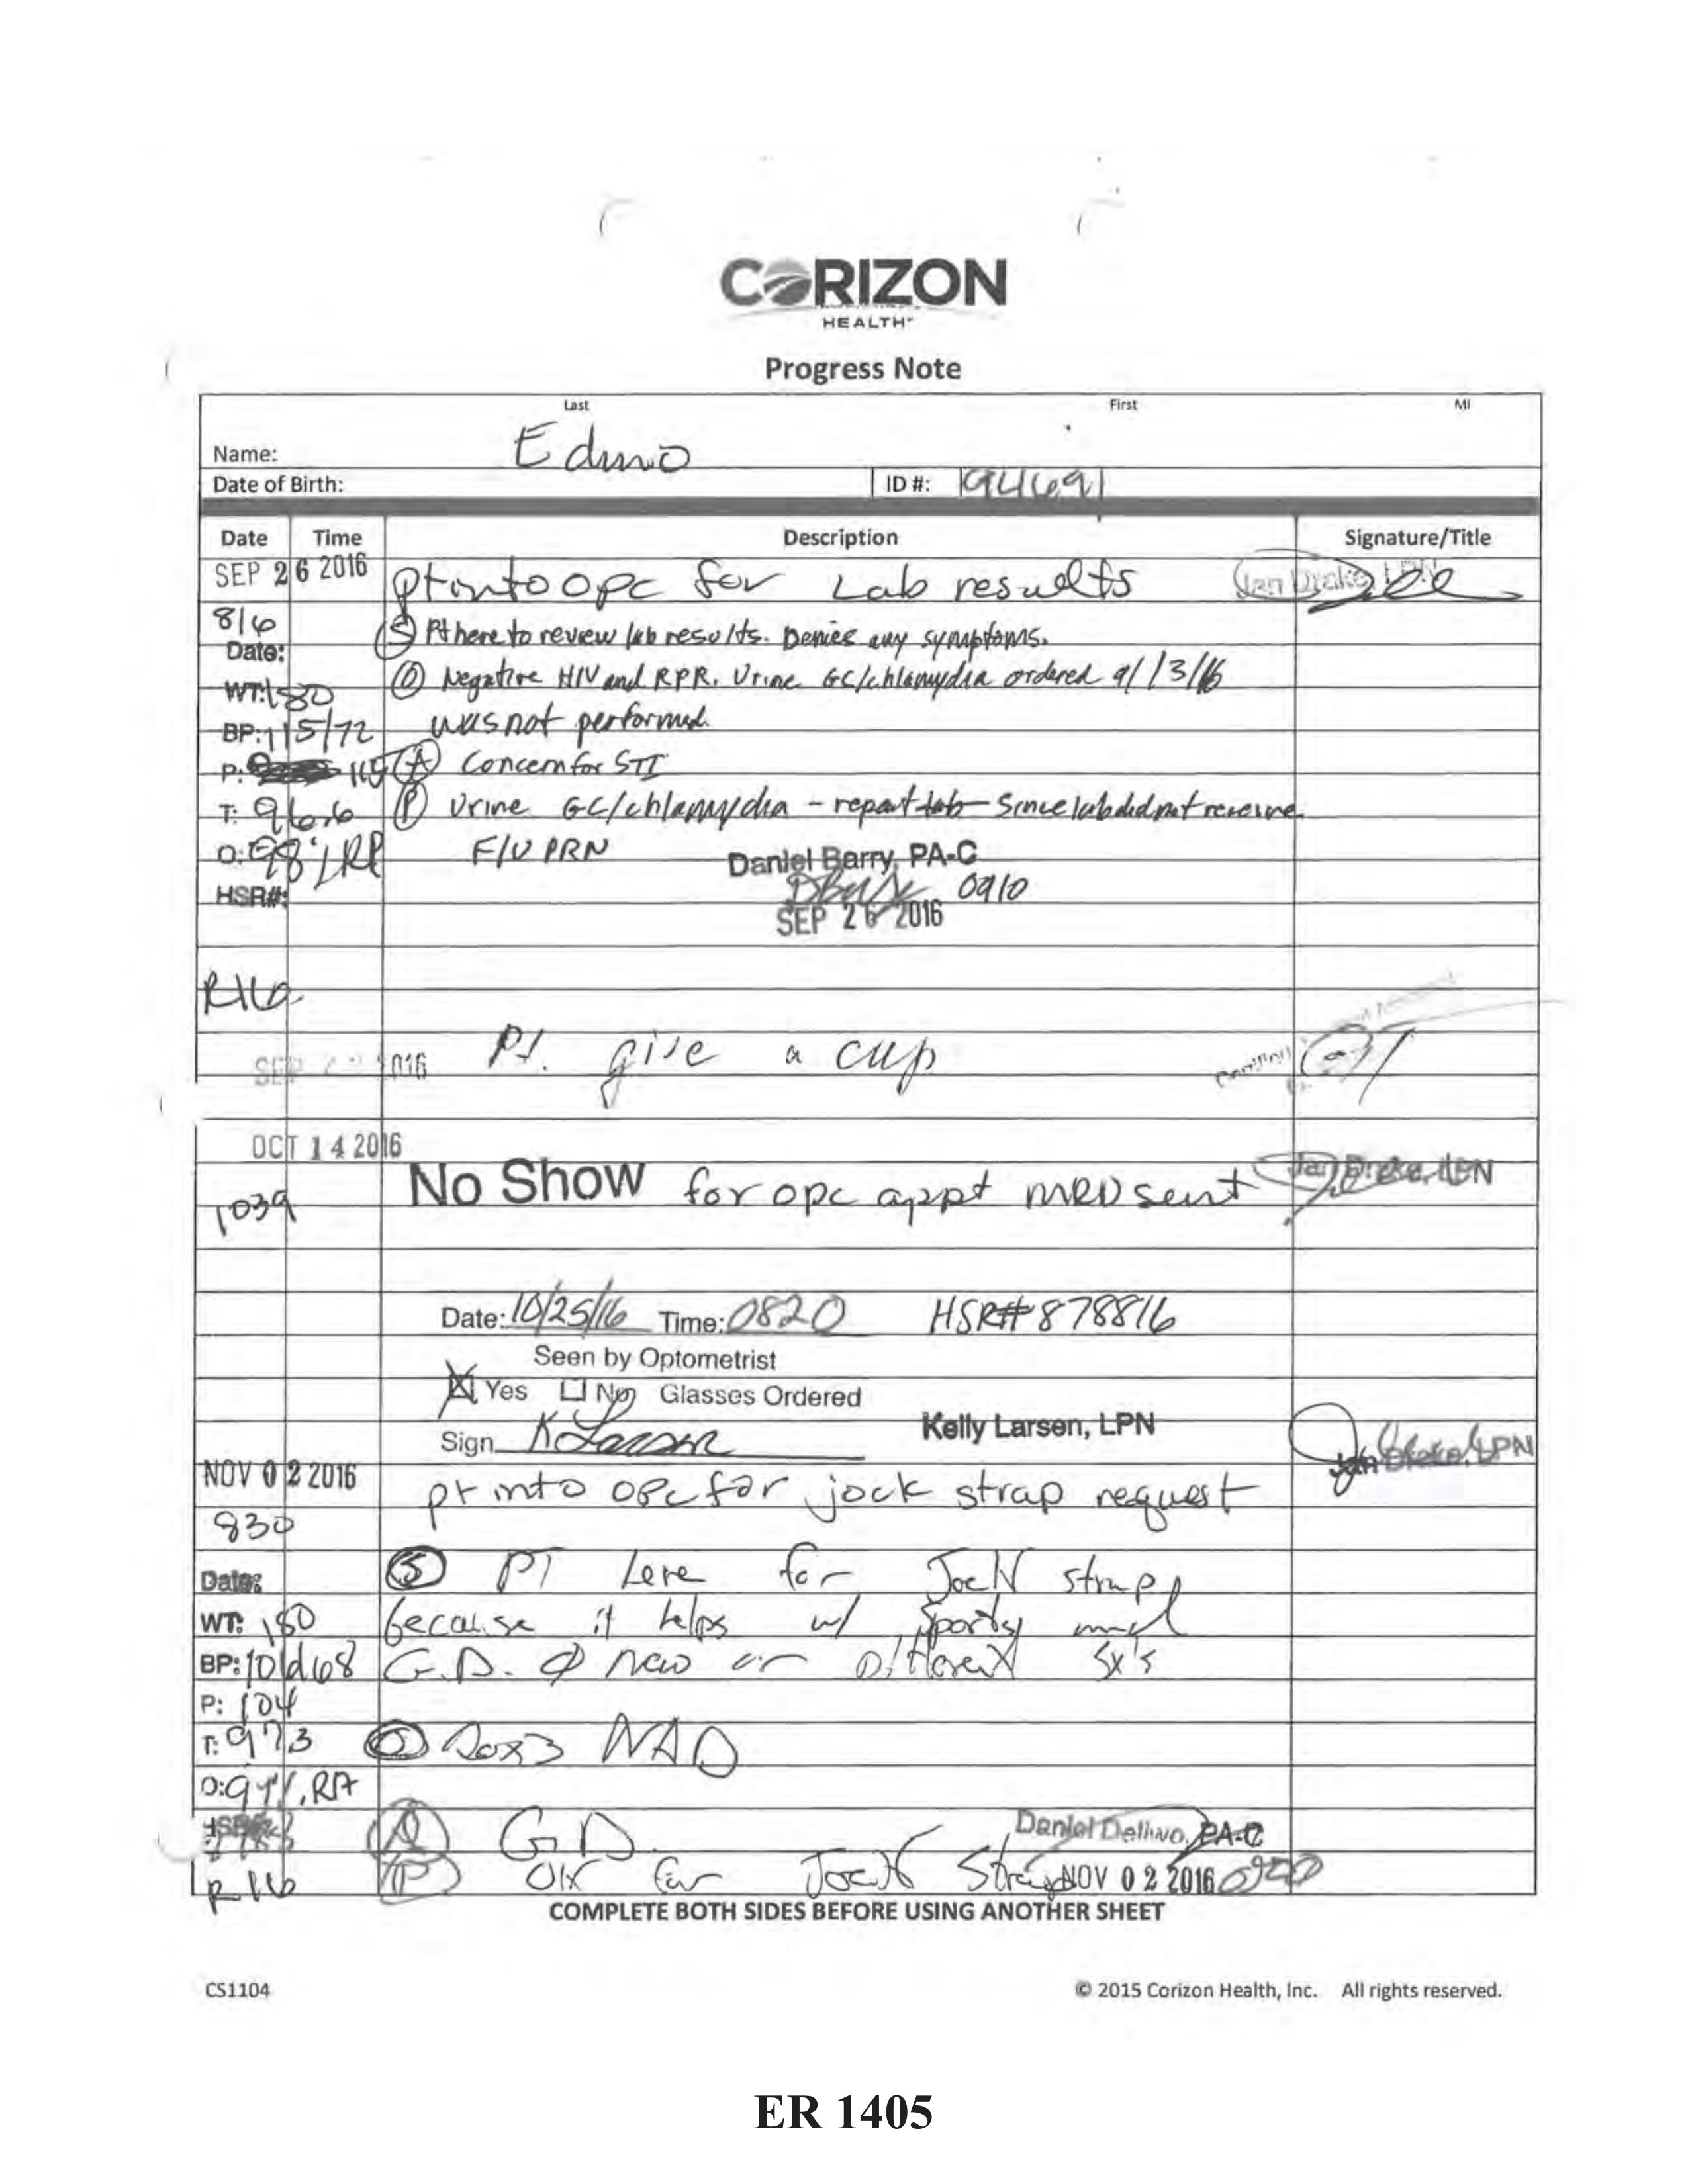 CORIZON
HEALTH
Progress Note
Last First MI
Name: Edmo
Date of Birth: ID #: 94691
Date Time Description Signature/Title
SEP 26 2016 pt into opc for Lab results Jan Drake, LPN
816
Date: Ⓢ Pt here to review lab results. Denies any symptoms.
WT: 180 Ⓞ Negative HIV and RPR. Urine GC/chlamydia ordered 9/13/16
BP: 115/72 was not performed.
P: 115 Ⓐ Concern for STI
T: 96.6 Ⓟ Urine GC/chlamydia - repeat lab - since lab did not receive
O: 98% F/U PRN Daniel Barry, PA-C
HSR#: 0910
SEP 26 2016
SEP 2016 Pt. give a cup
OCT 14 2016
No Show for opc appt sent Jan Drake, LPN
1039
Date: 10/25/16 Time: 0820 HSR# 878816
Seen by Optometrist
Yes No Glasses Ordered
Sign K Larsen Kelly Larsen, LPN
Jan Drake, LPN
NOV 02 2016 pt into opc for jock strap request
830
Date: Ⓢ PT here for Jock strap
WT: 180 because it helps w/ and
BP: 68 G.D. Ø new or different sx's
P: 104
T: 97.3 Ⓞ x3 NAD
O: 97%, RA
HSR#: Ⓐ G.D. Daniel Dellwo, PA-C
R16 Ⓟ OK for Jock Strap NOV 02 2016
COMPLETE BOTH SIDES BEFORE USING ANOTHER SHEET
CS1104 © 2015 Corizon Health, Inc. All rights reserved.
ER 1405